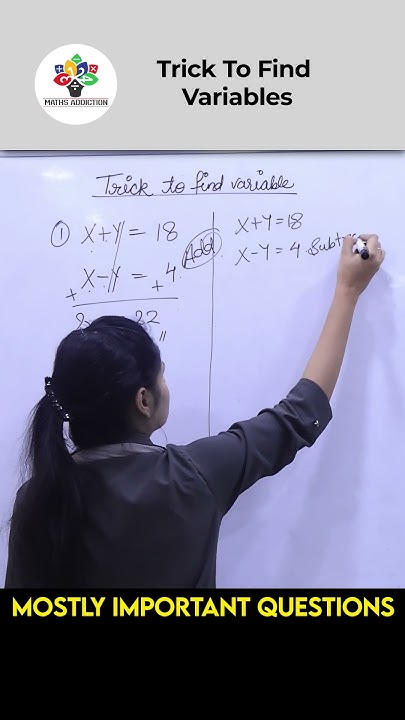 MATHS ADDICTION
Trick To Find
Variables
Trick to find variable
① X+Y = 18
X-Y = 4
+ +
22
Add
X+Y=18
X-Y = 4.
MOSTLY IMPORTANT QUESTIONS